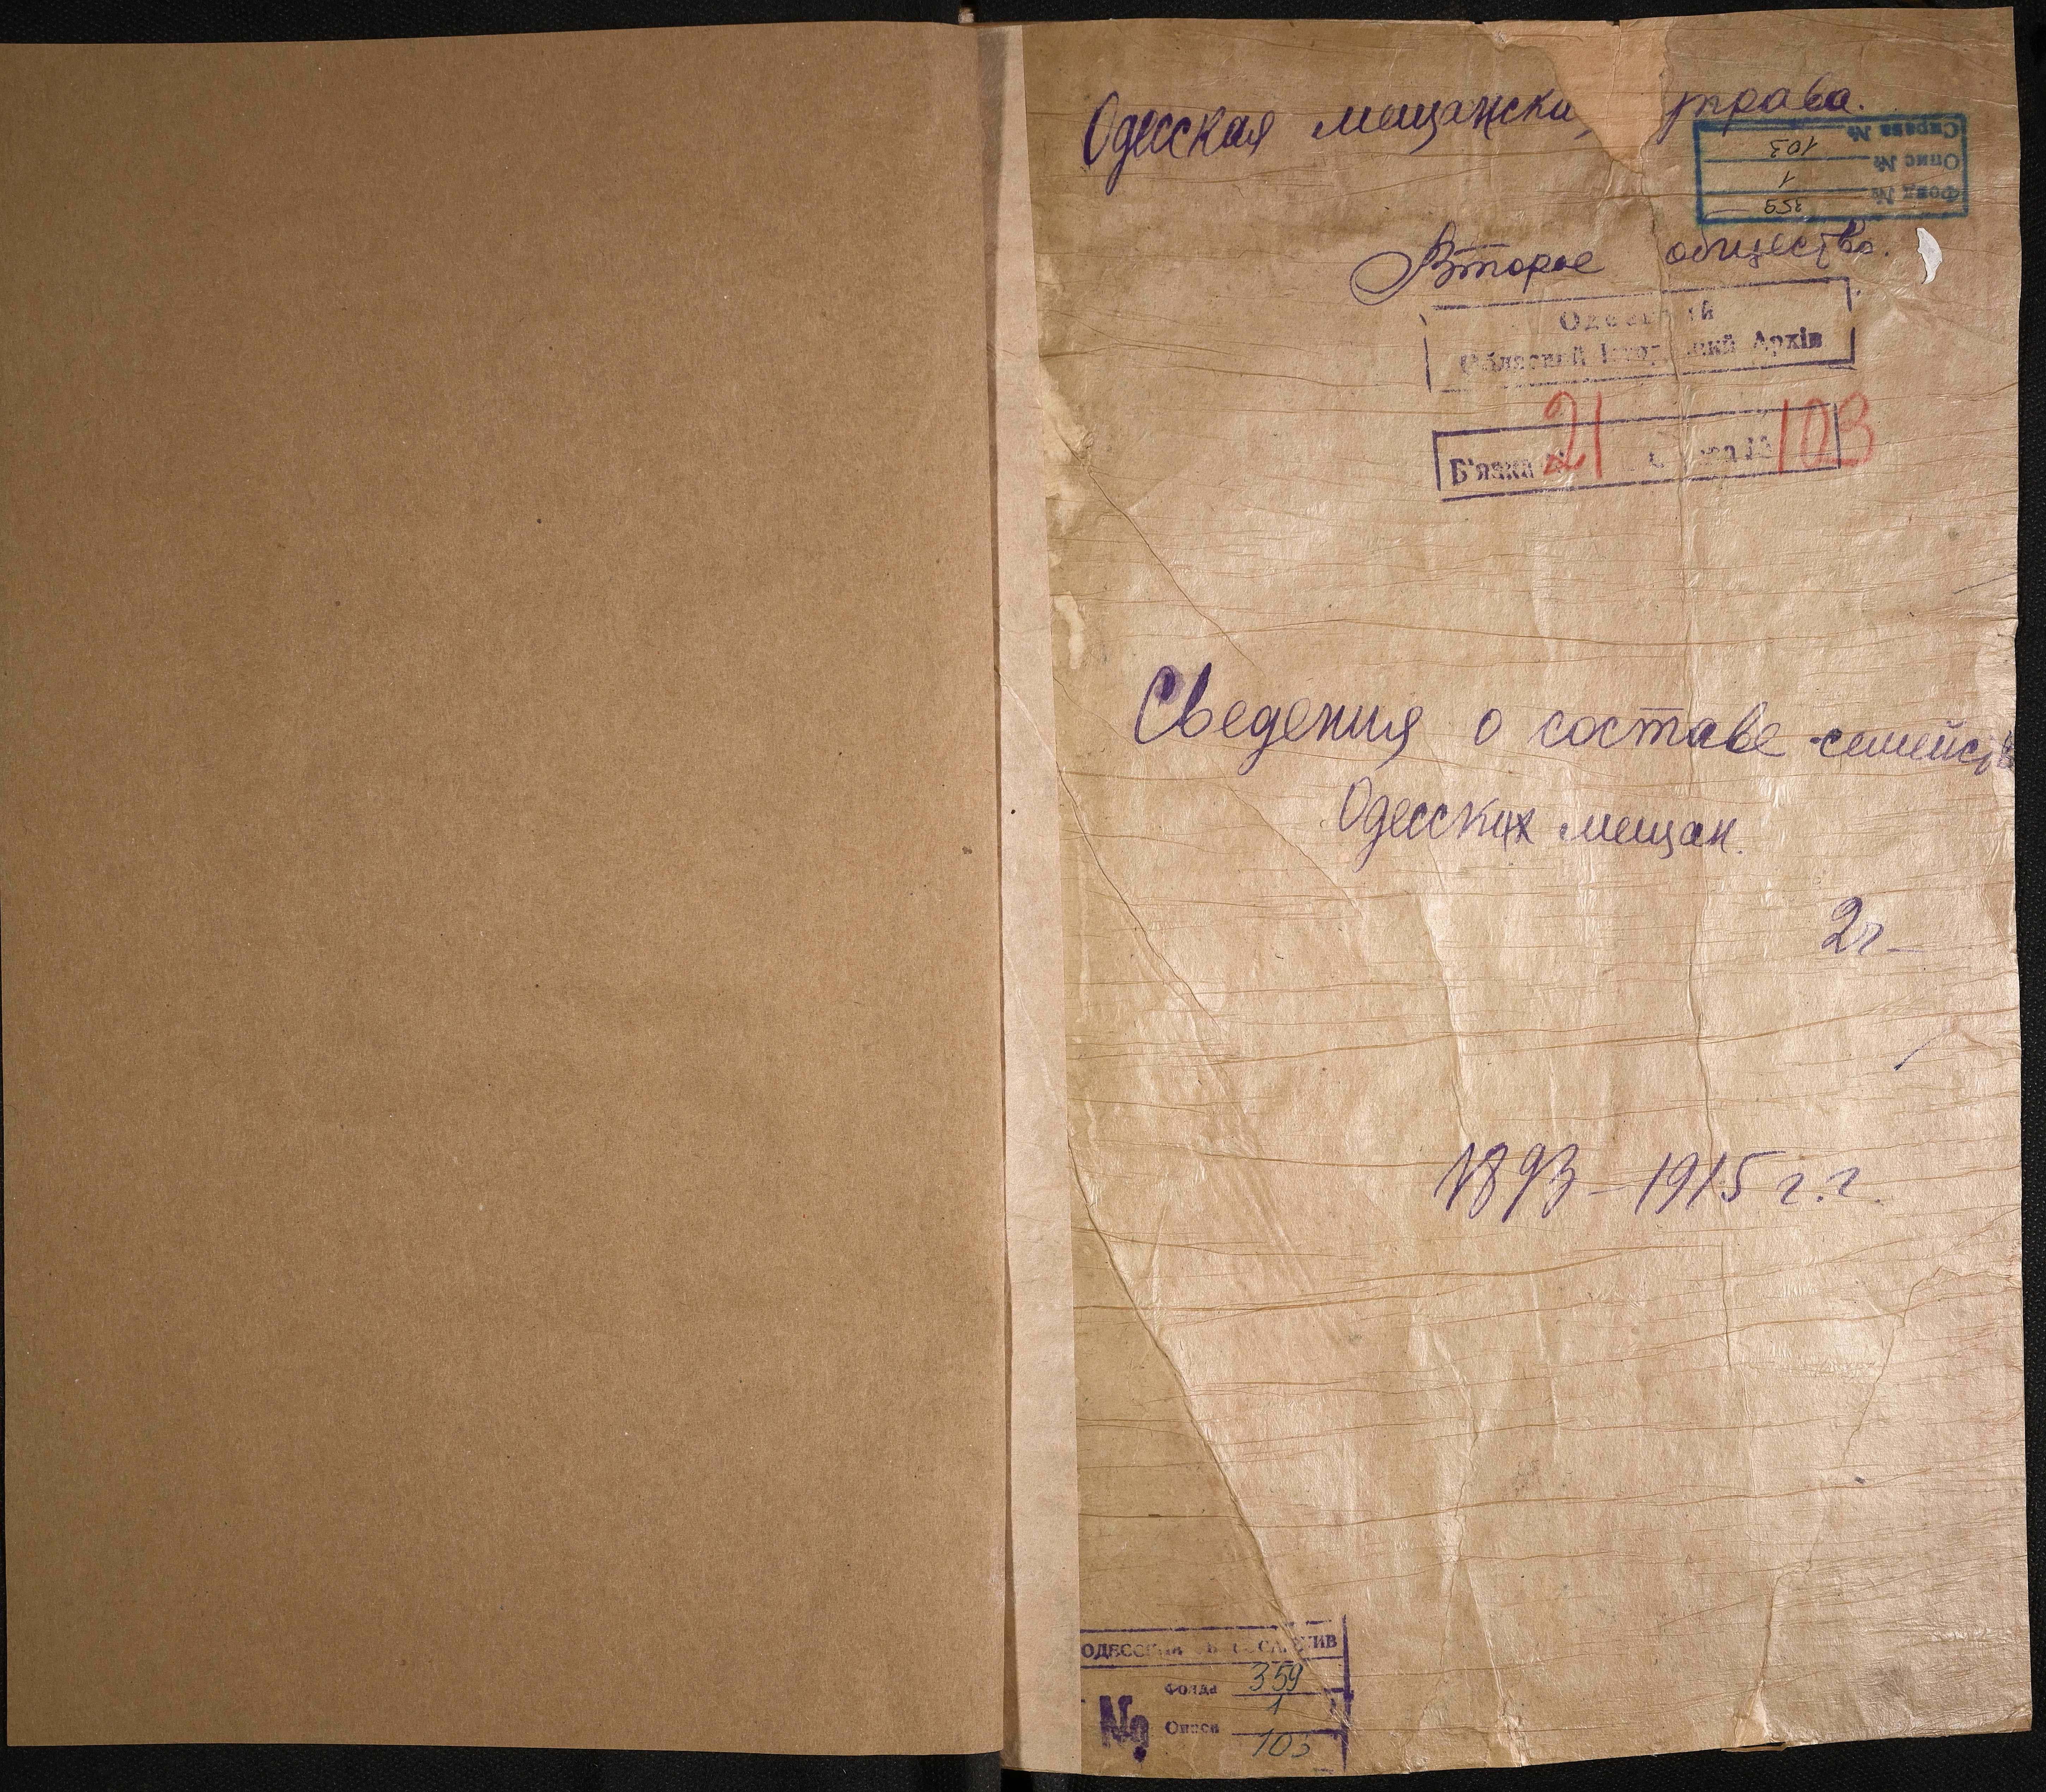 Одесская мещанска управа.
Справа № 103
Опис № 1
Фонд № 359
Второе общество.
Одеський
Обласний Істор Архів
В'язка № 21 Справа № 103
Сведения о составе семейств
Одесских мещан.
2г-
1893-1915 г.г.
ОДЕССКИЙ ОБЛГОСАРХИВ
Фонда 359
Описи 1
№ 103